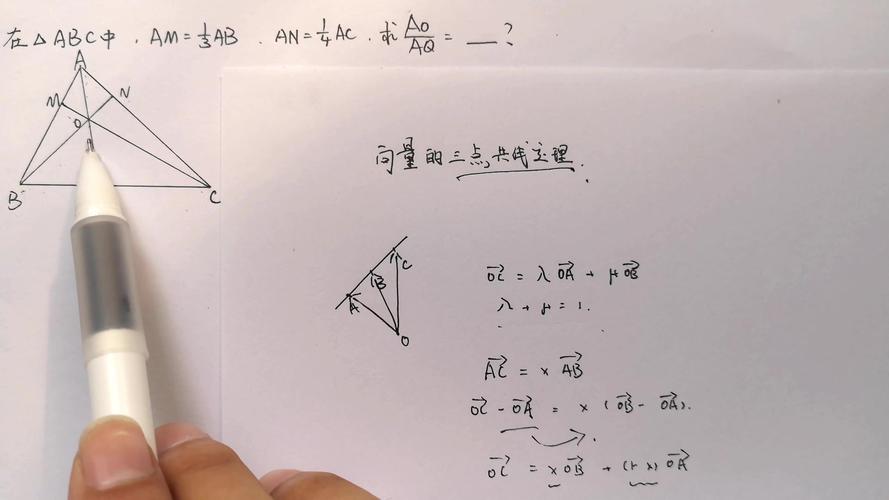 在△ABC中，AM=⅓AB．AN=¼AC．求AO/AQ=__?
A
M
N
O
B
C
向量的三点共线定理．
C
B
A
O
→OC = λ→OA + μ→OB
λ + μ = 1.
→AC = x→AB
→OC - →OA = x(→OB - →OA).
→OC = x→OB + (1-x)→OA